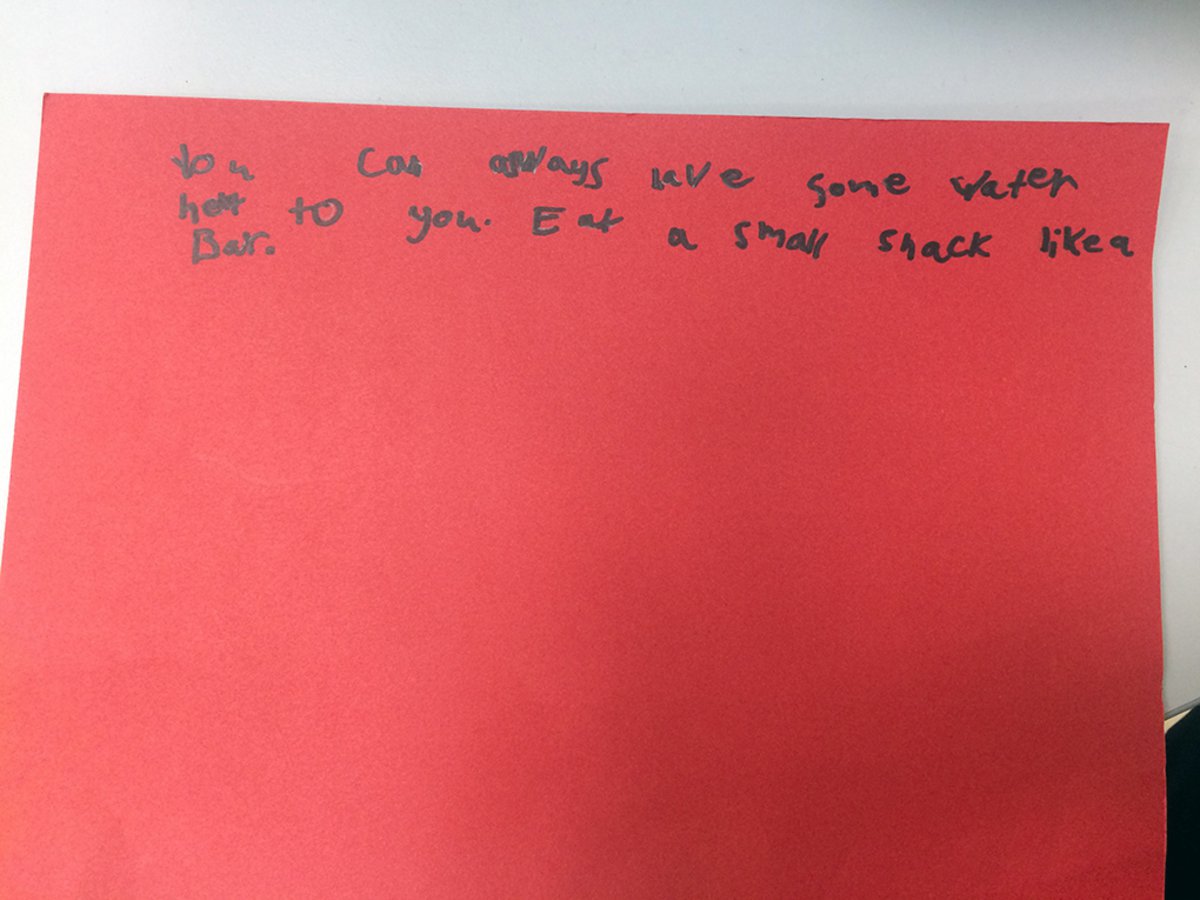 You can always have some water
next to you. Eat a small snack like a
Bar.